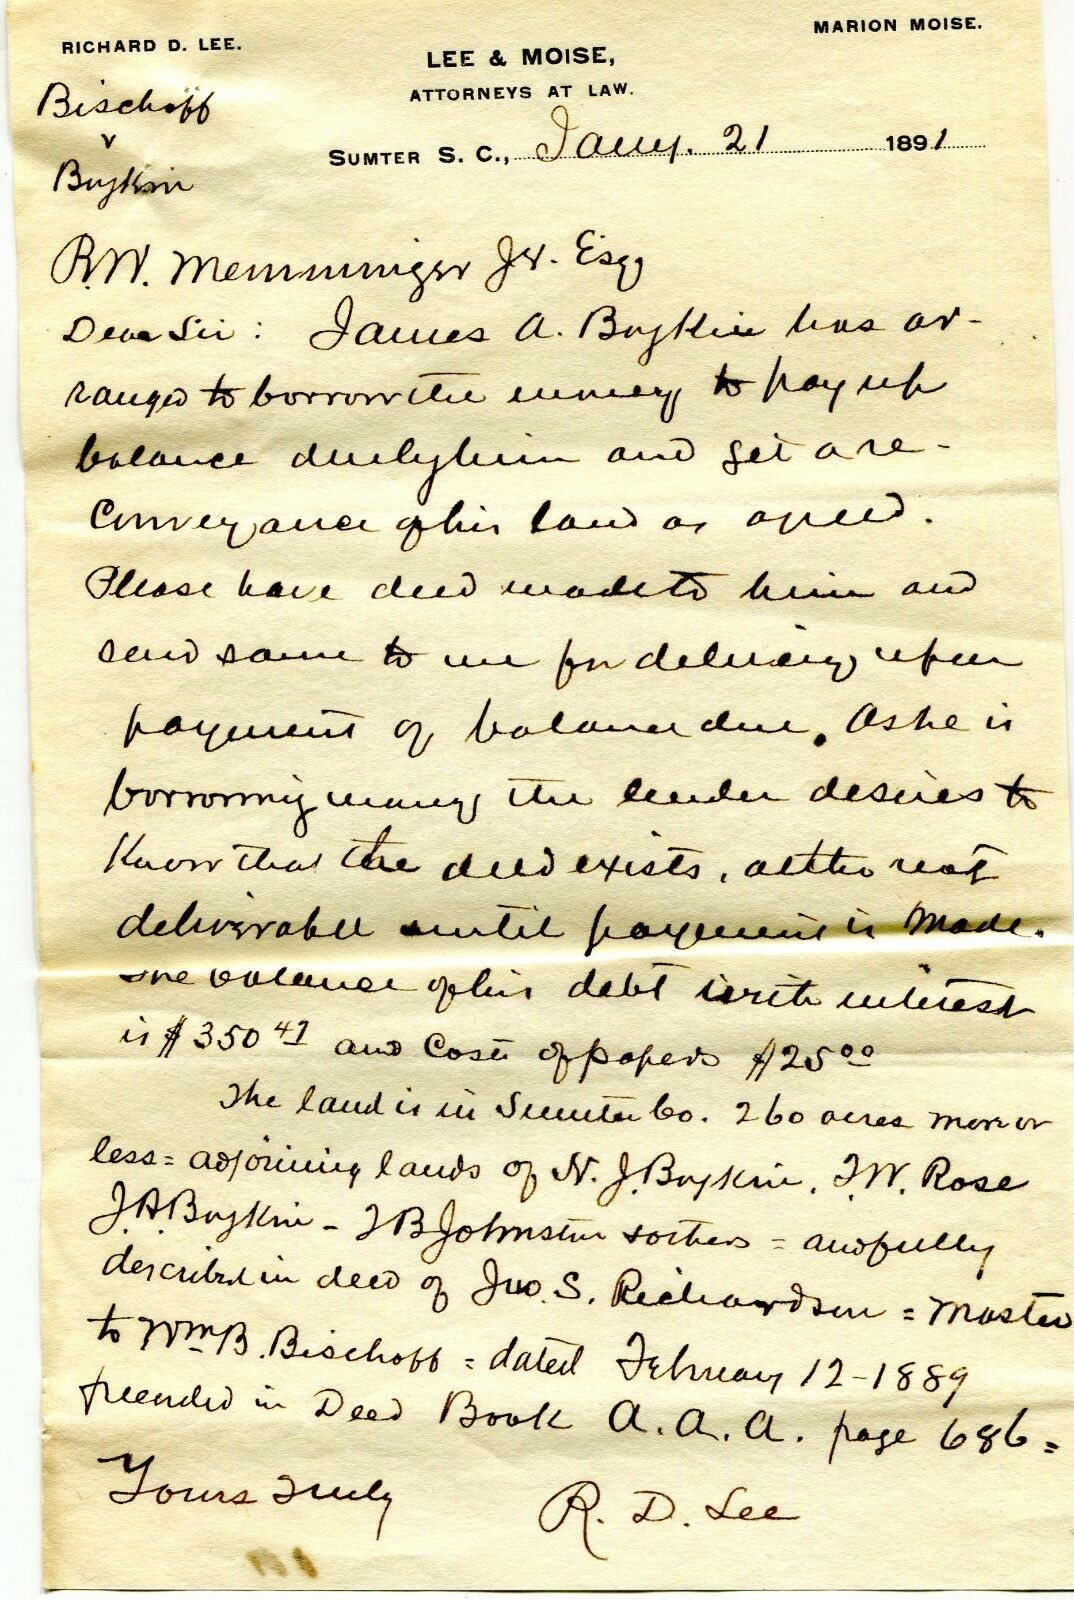 RICHARD D. LEE.
MARION MOISE.
LEE & MOISE,
ATTORNEYS AT LAW.
Bischoff
v
Boykin
SUMTER S. C., Jany. 21 1891
R.W. Memminger Jr. Esqr
Dear Sir: James A. Boykin has ar-
ranged to borrow the money to pay up
balance due by him and get a re-
Conveyance of his land as agreed.
Please have deed made to him and
send same to me for delivery upon
payment of balance due. As he is
borrowing money the lender desires to
Know that the deed exists, altho not
deliverable until payment is made.
The balance of his debt with interest
is $350 47 and Costs of papers $25 00
The land is in Sumter Co. 260 acres more or
less = adjoining lands of N. J. Boykin, T.W. Rose
J.A. Boykin - T B Johnston & others = and fully
described in deed of Jno. S. Richardson = Master
to Wm B. Bischoff = dated February 12 - 1889
recorded in Deed Book A. A. A. page 686 =
Yours Truly
R. D. Lee